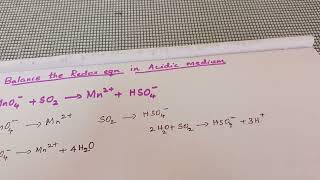 Balance the Redox eqn. in Acidic medium
MnO₄⁻ + SO₂ → Mn²⁺ + HSO₄⁻
→ Mn²⁺ SO₂ → HSO₄⁻
2H₂O + SO₂ → HSO₄⁻ + 3H⁺
→ Mn²⁺ + 4H₂O